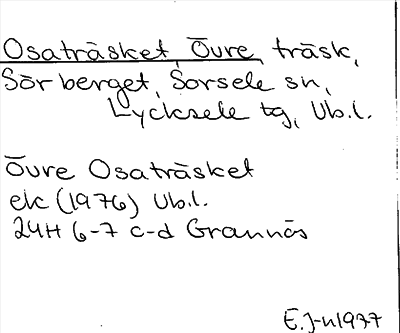 Osaträsket, Övre, träsk,
Sörberget, Sorsele sn,
Lycksele tg, Vb.l.
Övre Osaträsket
ek (1976) Vb.l.
24H 6-7 c-d Grannäs
E.J-n 1977